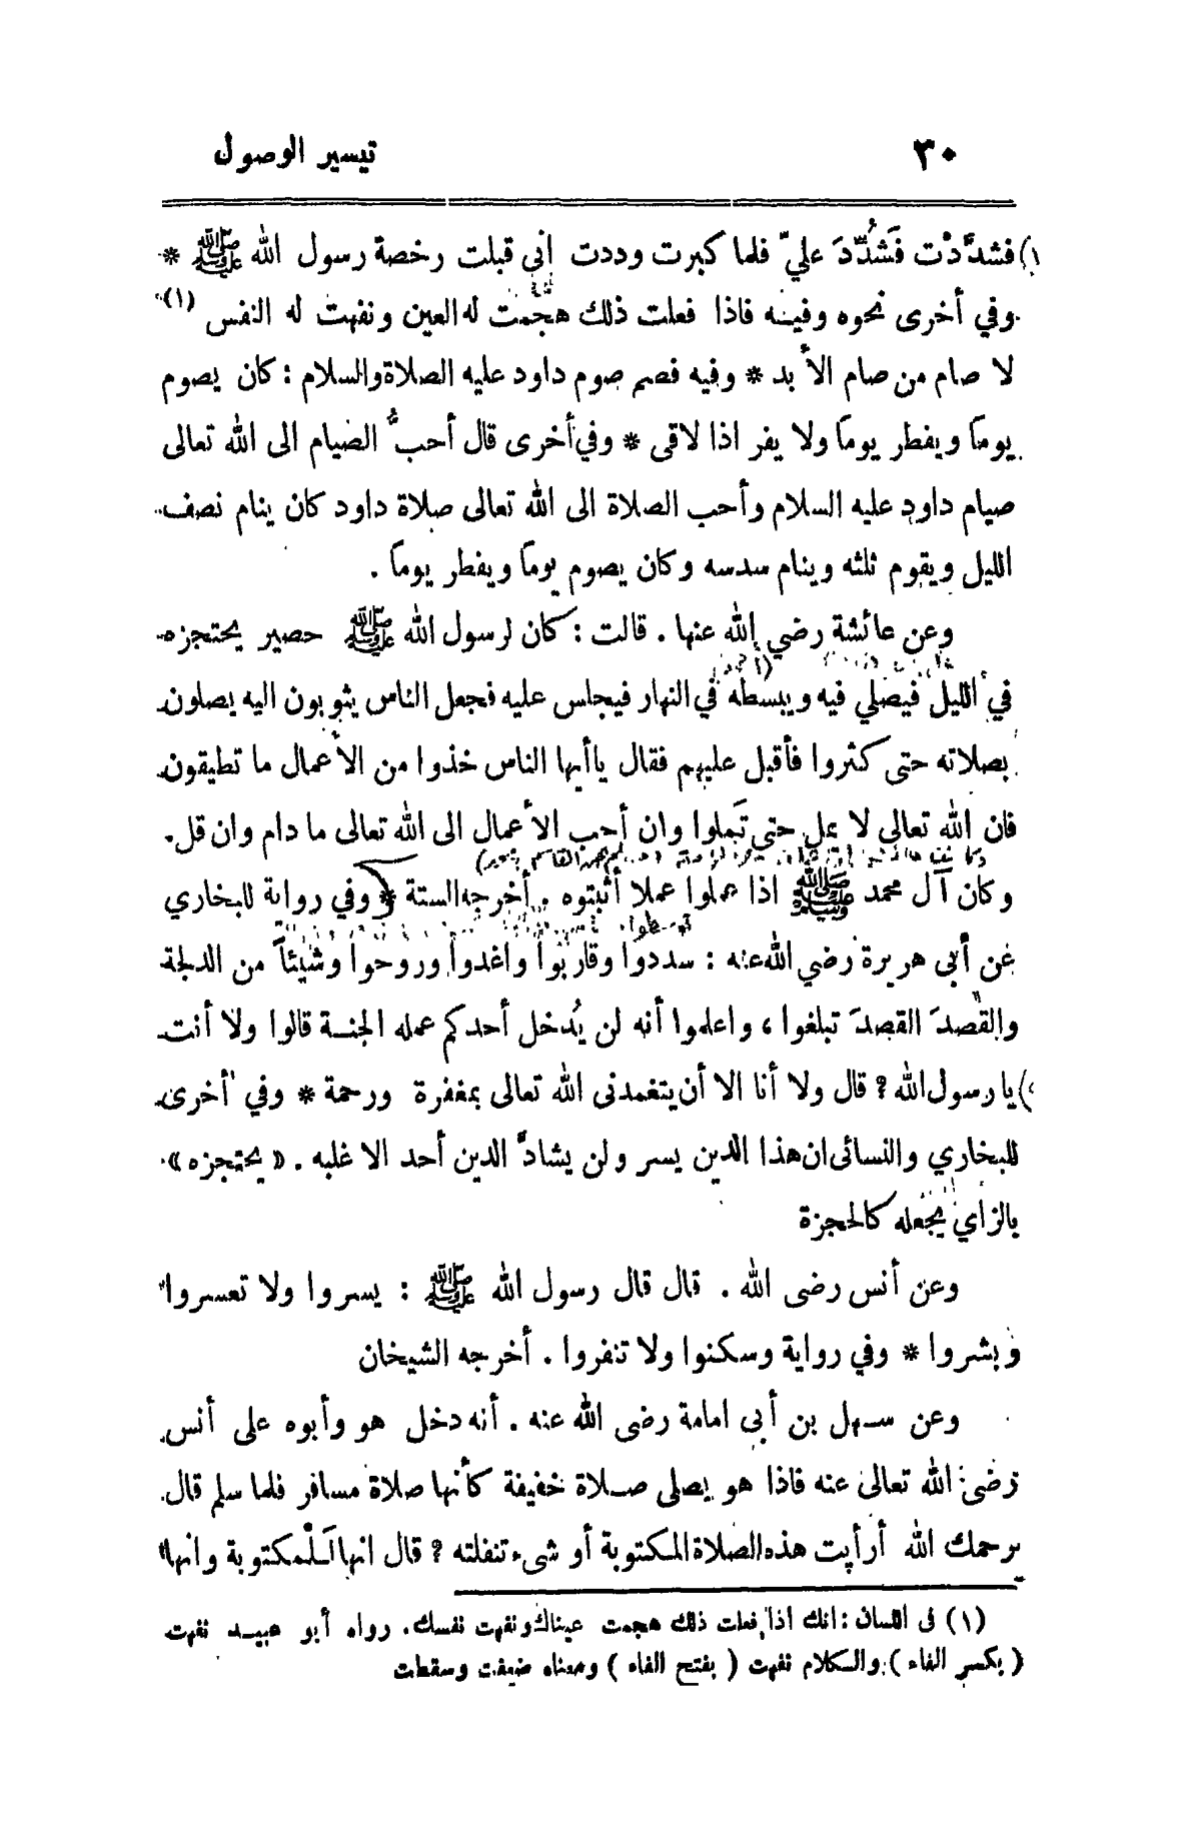 ٣٠ تيسير الوصول
فشدَّدْت فَشُدِّدَ عليّ فلما كبرت وددت اني قبلت رخصة رسول الله ﷺ *
وفي أخرى نحوه وفيه فاذا فعلت ذلك هجمت له العين ونفهت له النفس (١)
لا صام من صام الأبد * وفيه فصم صوم داود عليه الصلاة والسلام : كان يصوم
يوماً ويفطر يوماً ولا يفر اذا لاقى * وفي أخرى قال أحبُّ الصيام الى الله تعالى
صيام داود عليه السلام وأحب الصلاة الى الله تعالى صلاة داود كان ينام نصف
الليل ويقوم ثلثه وينام سدسه وكان يصوم يوماً ويفطر يوماً .
وعن عائشة رضي الله عنها . قالت : كان لرسول الله ﷺ حصير يحتجزه
في الليل فيصلي فيه ويبسطه في النهار فيجلس عليه فجعل الناس يثوبون اليه يصلون
بصلاته حتى كثروا فأقبل عليهم فقال ياأيها الناس خذوا من الأعمال ما تطيقون
فان الله تعالى لا يمل حتى تَملوا وان أحب الأعمال الى الله تعالى ما دام وان قل .
وكان آل محمد ﷺ اذا عملوا عملا أثبتوه . أخرجه الستة * وفي رواية للبخاري
عن أبي هريرة رضي الله عنه : سددوا وقاربوا واغدوا وروحوا وشيئاً من الدلجة
والقصدَ القصدَ تبلغوا ، واعلموا أنه لن يُدخل أحدكم عمله الجنة قالوا ولا أنت
يا رسول الله ؟ قال ولا أنا الا أن يتغمدنى الله تعالى بمغفرة ورحمة * وفي أخرى
للبخاري والنسائى ان هذا الدين يسر ولن يشادَّ الدين أحد الا غلبه . «يحتجزه»
بالزاي يجعله كالحجزة
وعن أنس رضى الله . قال قال رسول الله ﷺ : يسروا ولا تعسروا
وبشروا * وفي رواية وسكنوا ولا تنفروا . أخرجه الشيخان
وعن سهل بن أبي امامة رضى الله عنه . أنه دخل هو وأبوه على أنس
رضى الله تعالى عنه فاذا هو يصلى صلاة خفيفة كأنها صلاة مسافر فلما سلم قال
يرحمك الله أرأيت هذه الصلاة المكتوبة أو شىء تنفلته ؟ قال انها لَلْمكتوبة وانها
(١) فى اللسان : انك اذا فعلت ذلك هجمت عيناك ونفهت نفسك . رواه أبو عبيد نفهت
( بكسر الفاء ) والكلام نفهت ( بفتح الفاء ) ومعناه ضعفت وسقطت